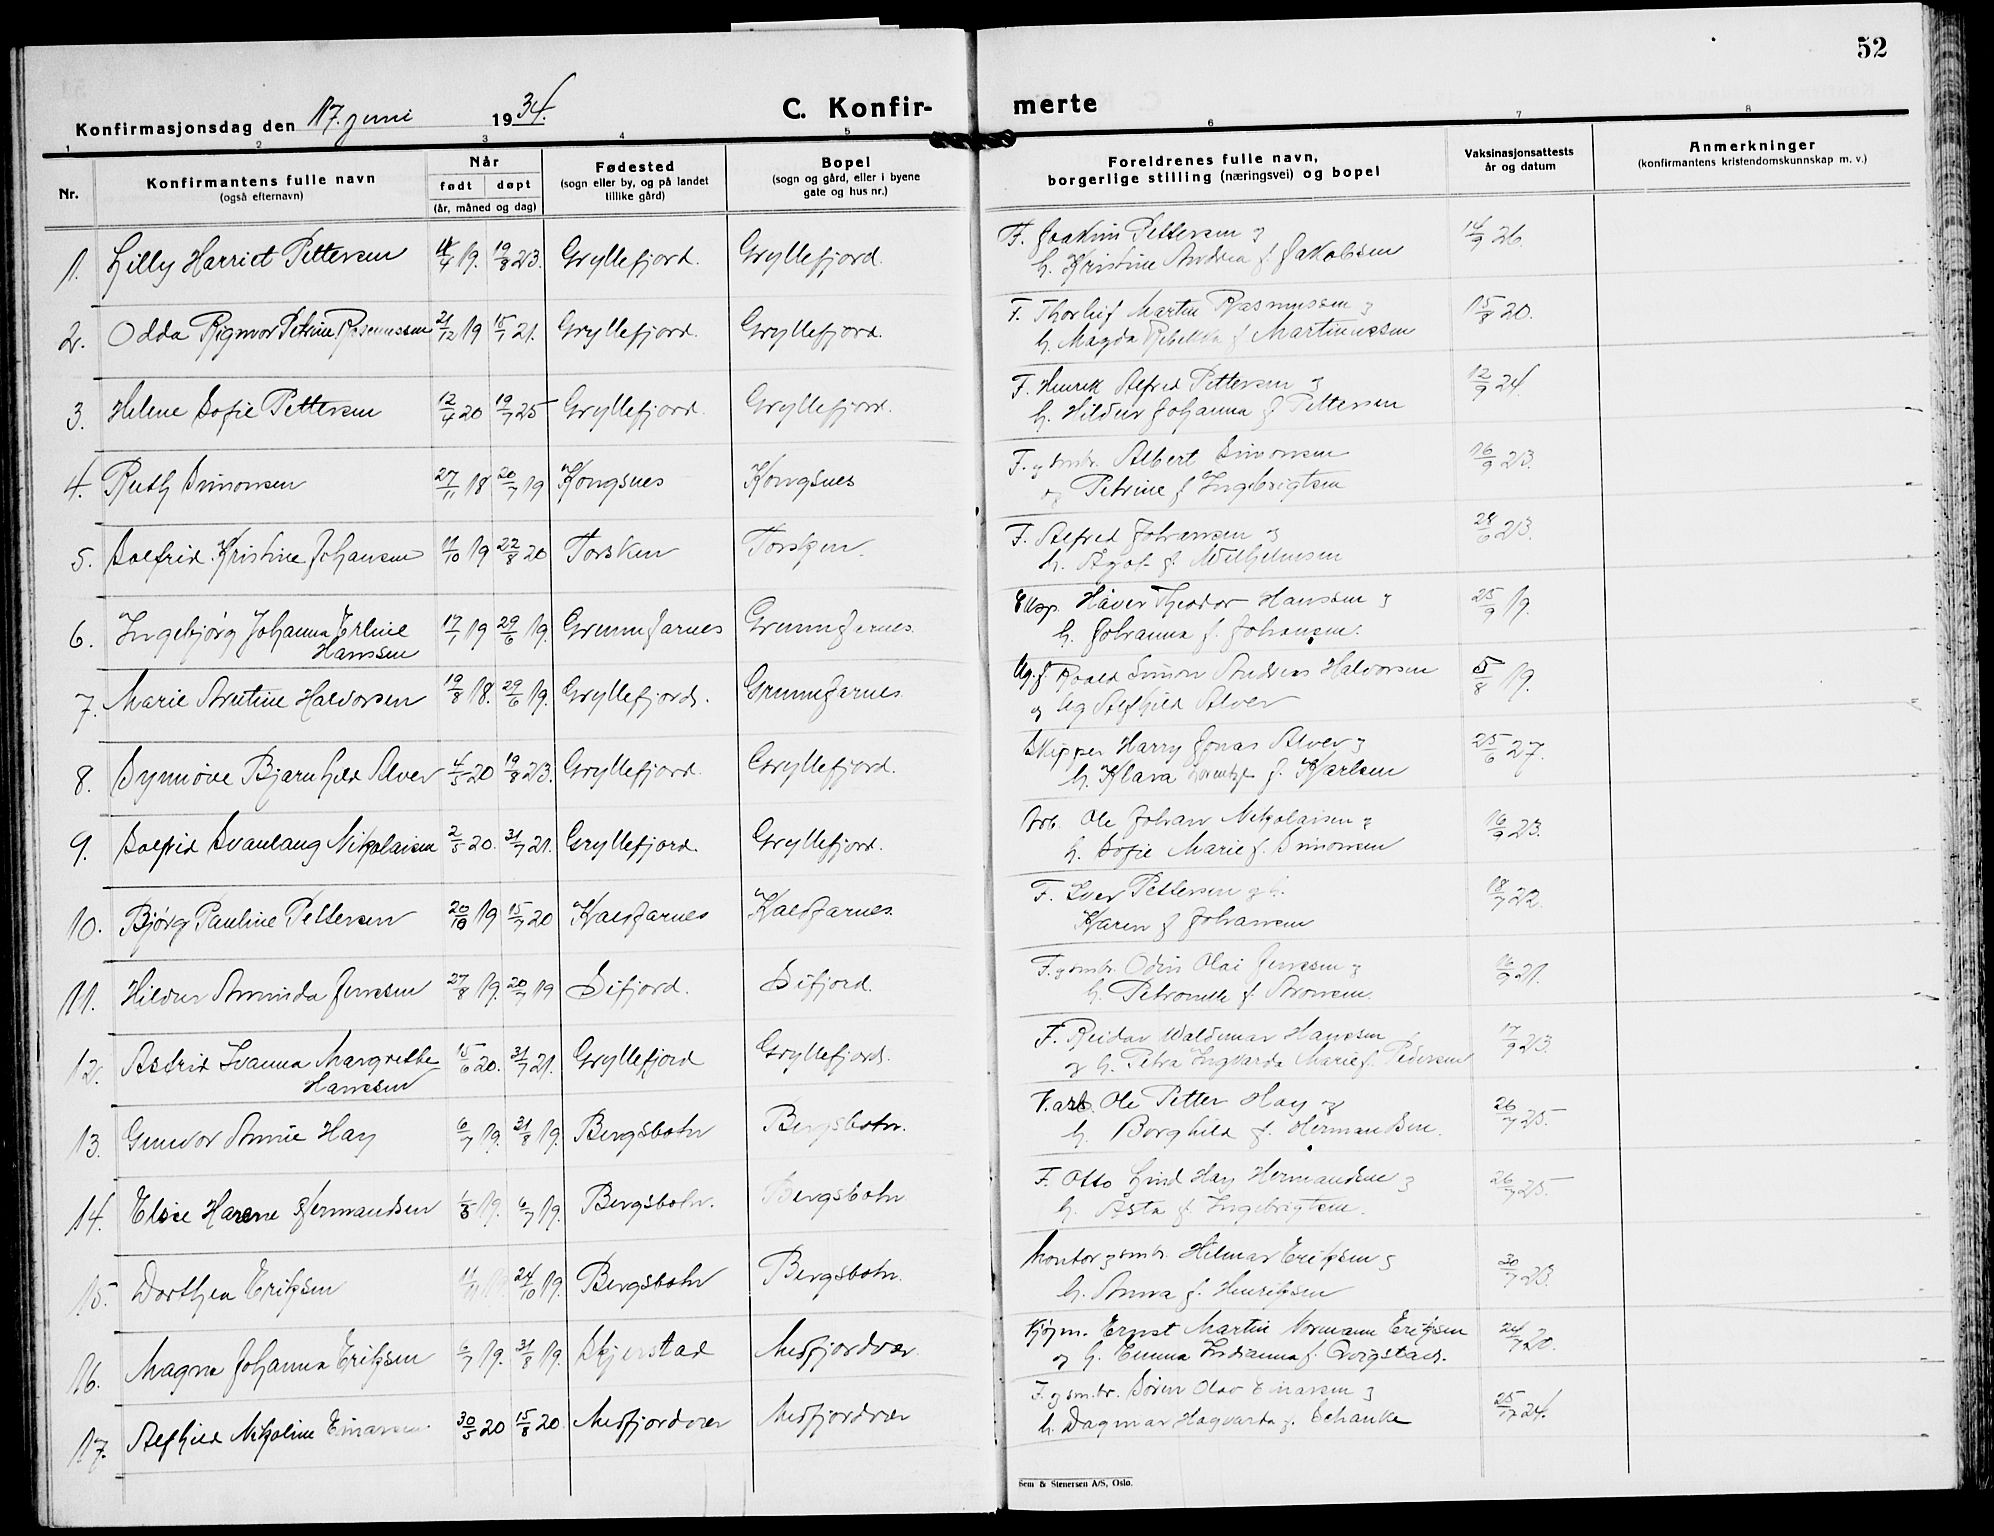 52
Konfirmasjonsdag den 17. juni 1934.
C. Konfir- merte
1 2 3 4 5 6 7 8
Nr.
Konfirmantens fulle navn
(også efternavn)
Når
født døpt
(år, måned og dag)
Fødested
(sogn eller by, og på landet
tillike gård)
Bopel
(sogn og gård, eller i byene
gate og hus nr.)
Foreldrenes fulle navn,
borgerlige stilling (næringsvei) og bopel
Vaksinasjonsattests
år og datum
Anmerkninger
(konfirmantens kristendomskunnskap m. v.)
1. Lilly Harriet Pettersen 19. 19/8 23. Gryllefjord. Gryllefjord. F. Joakim Pettersen og 14/9 26.
h. Kristine Andrea f. Jakobsen
2. Odda Rigmor Petrine Rasmussen 21/12 19 15/7 21. Gryllefjord. Gryllefjord. F. Thorleif Martin Rasmussen og 15/8 20.
h. Magda Rebekka f. Martinussen
3. Helene Sofie Pettersen 12/4 20 19/7 25 Gryllefjord. Gryllefjord. F. Henrik Alfred Pettersen og 12/9 24.
h. Hildur Johanna f. Pettersen
4. Ruth Simonsen 27/11 18 20/7 19 Kongsnes Kongsnes F. og smbr. Albert Simonsen 16/9 23.
og Petrine f. Ingebrigtsen
5. Solfrid Kristine Johansen 11/10 19 22/8 20 Torsken Torsken. F. Alfred Johansen og 28/6 23.
h. Agot f. Wilhelmsen
6. Ingebjørg Johanna Erline 17/1 19 29/6 19. Grunnfarnes Grunnfarnes. Eksp. Håver Theodor Hanssen og 25/9 19.
Hanssen h. Johanna f. Johansen.
7. Marie Arntine Halvorsen 19/8 18. 29/6 19. Gryllefjord. Grunnfarnes. Ug. f. Roald Simon Andreas Halvorsen 5/8 19.
og Ug Alfhild Alver
8. Synnøve Bjarnhild Alver 4/5 20 19/8 23. Gryllefjord. Gryllefjord. Skipper Harry Jonas Alver og 25/6 27.
h. Klara Lorentze f. Karlsen
9. Solfrid Svanlaug Nikolaisen 2/5 20. 31/7 21. Gryllefjord. Gryllefjord. Arb. Ole Johan Nikolaisen og 16/9 23.
h. Sofie Marie f. Simonsen
10. Bjørg Pauline Pettersen 20/10 19 15/7 20 Kaldfarnes Kaldfarnes. F. Iver Pettersen og h. 18/7 22.
Karen f. Johansen
11. Hildur Aminda Jenssen 27/8 19. 20/7 19 Sifjord. Sifjord. F. og smbr. Odin Olai Jenssen og 16/9 21.
h. Petronelle f. Aronsen.
12. Astrid Ivanna Margrethe 15/6 20. 31/7 21. Gryllefjord Gryllefjord. F. Reidar Waldemar Hanssen 17/9 23.
Hanssen og h. Petra Ingvarda Marie f. Pedersen
13. Gunvor Annie Hay 6/7 19. 31/8 19. Bergsbotn Bergsbotn. V.arb. Ole Petter Hay og 26/7 25.
h. Borghild f. Hermandsen.
14. Elsie Harene Hermandsen 19. 6/7 19. Bergsbotn. Bergsbotn F. Otto Lind Hay Hermandsen og 26/7 25.
h. Åsta f. Ingebrigtsen.
15. Dorthea Eriksen 24/10 19. Bergsbotn Bergsbotn. Kontor og smbr. Hilmar Eriksen og 30/7 23.
h. Anna f. Henriksen
16. Magna Johanna Eriksen 6/7 19. 31/8 19. Skjerstad Mefjordvær Kjøpm. Ernst Martin Normann Eriksen 24/7 20.
og h. Emma Indianna f. Qvigstad.
17. Alfhild Nikoline Einarsen. 30/5 20 15/8 20. Mefjordvær Mefjordvær F. og smbr. Søren Olav Einarsen og 24.
h. Dagmar Hagvarda f. Schanke
Sem & Stenersen A/S, Oslo.